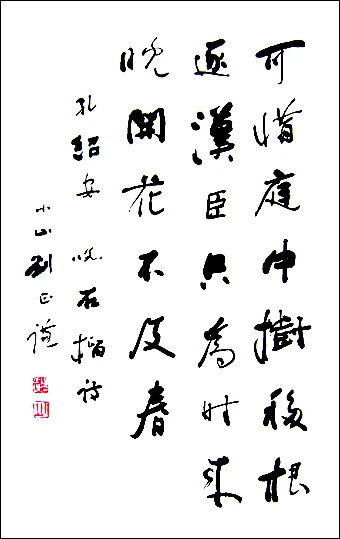 可惜庭中樹移根
逐漢臣只為時來
晚開花不及春
孔紹安 詠石榴詩
小山劉正